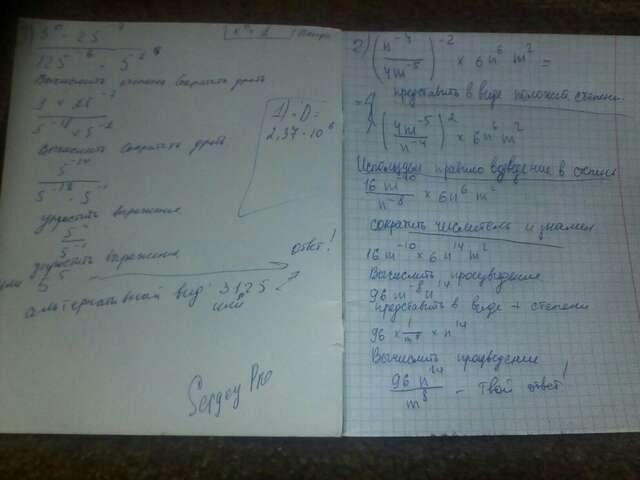 5⁰ · 25⁻⁷
125⁻⁶ · 5
x⁰ = 1
Вычислить степень Сократить дробь
1 × 25⁻⁷
Вычислить Сократить дробь
5⁻¹⁴
5⁻¹⁸ · 5⁻¹
упростить выражение
упростить выражение
5⁵
ответ!
или
альтернативный вид: 3125
1) - D =
2,37 · 10⁶
Sergey Pro
2) (n⁻⁴ / 4m⁻⁵)⁻² × 6n⁶ m² =
представить в виде положит степени
(4m⁻⁵ / n⁻⁴)² × 6n⁶ m²
Используем правило возведение в степень
16 m⁻¹⁰ / n⁻⁸ × 6n⁶ m²
сократить числитель и знамен
16 m⁻¹⁰ × 6 n¹⁴ m²
Вычислить произведение
96 m⁻⁸ n¹⁴
представить в виде + степени
96 × 1/m⁸ × n¹⁴
Вычислить произведение
96 n¹⁴ / m⁸ - твой ответ!